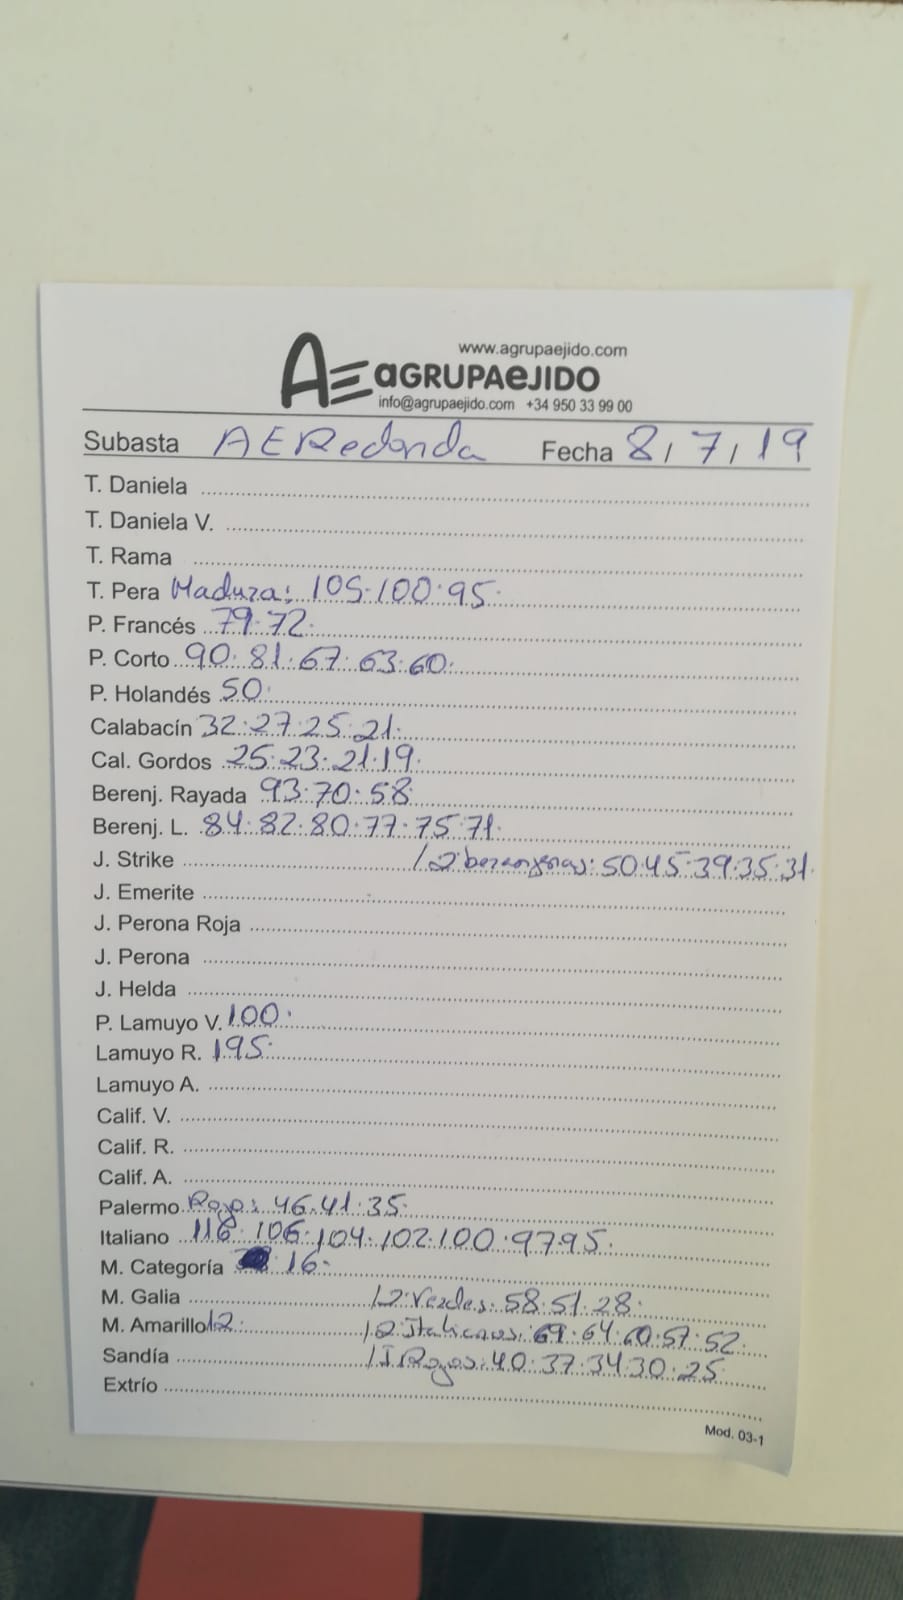 www.agrupaejido.com
AE aGRUPAeJIDO
info@agrupaejido.com +34 950 33 99 00
Subasta AERedonda Fecha 8/7/19
T. Daniela
T. Daniela V.
T. Rama
T. Pera Madura: 105.100.95.
P. Francés 79.72.
P. Corto 90.81.67.63.60.
P. Holandés 50.
Calabacín 32.27.25.21.
Cal. Gordos 25.23.21.19.
Berenj. Rayada 93.70.58
Berenj. L. 84.82.80.77.75.71.
J. Strike /2ºberenjenas:50.45.39.35.31.
J. Emerite
J. Perona Roja
J. Perona
J. Helda
P. Lamuyo V. 100.
Lamuyo R. 195.
Lamuyo A.
Calif. V.
Calif. R.
Calif. A.
Palermo Rojo: 46.41.35.
Italiano 116.106.104.102.100.97.95.
M. Categoría 16.
M. Galia /2ºVerdes:58.51.28.
M. Amarillo 12. /2ºItalianos:69.64.60.57.52.
Sandía / Rojos:40.37.34.30.25
Extrío
Mod. 03-1